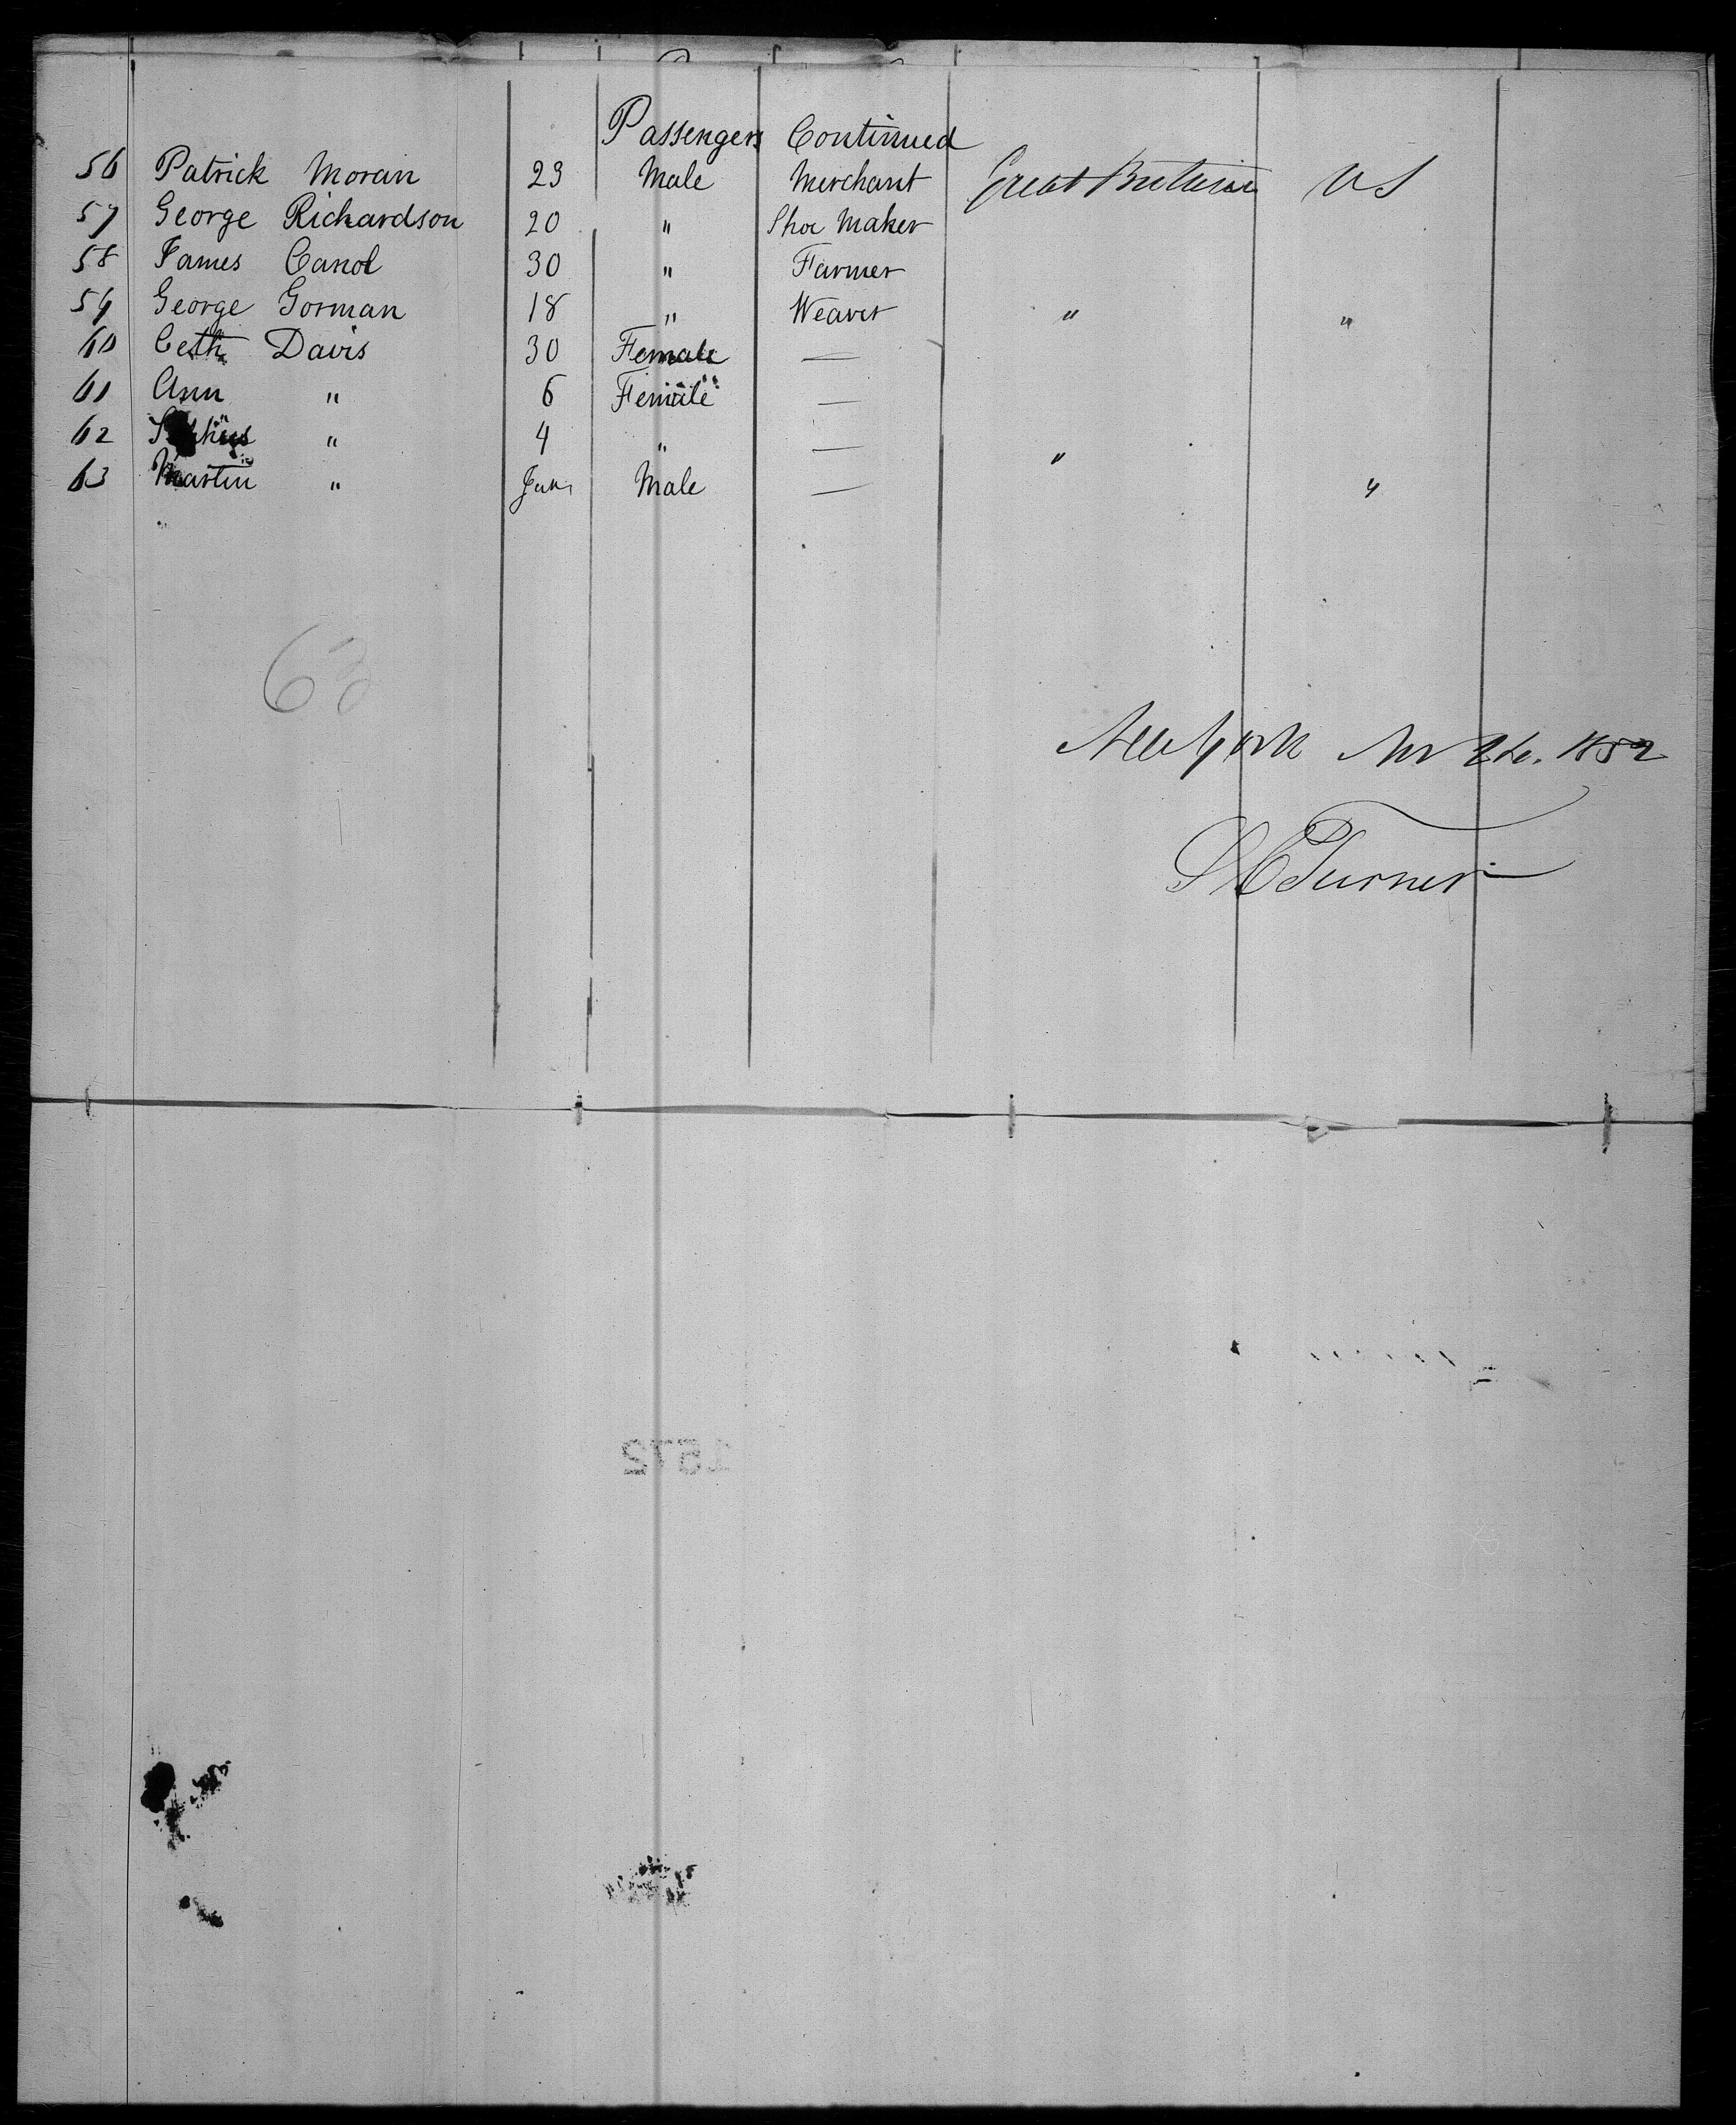 Passengers Continued
56 Patrick Moran 23 Male Merchant Great Brittian U S
57 George Richardson 20 " Shoe Maker
58 James Carrol 30 " Farmer
59 George Gorman 18 " Weaver " "
60 Ceth Davis 30 Female —
61 Ann " 6 Female —
62 " 4 " — "
63 Martin " Male — "
63
New York Nov 1852
S C Turner
1572